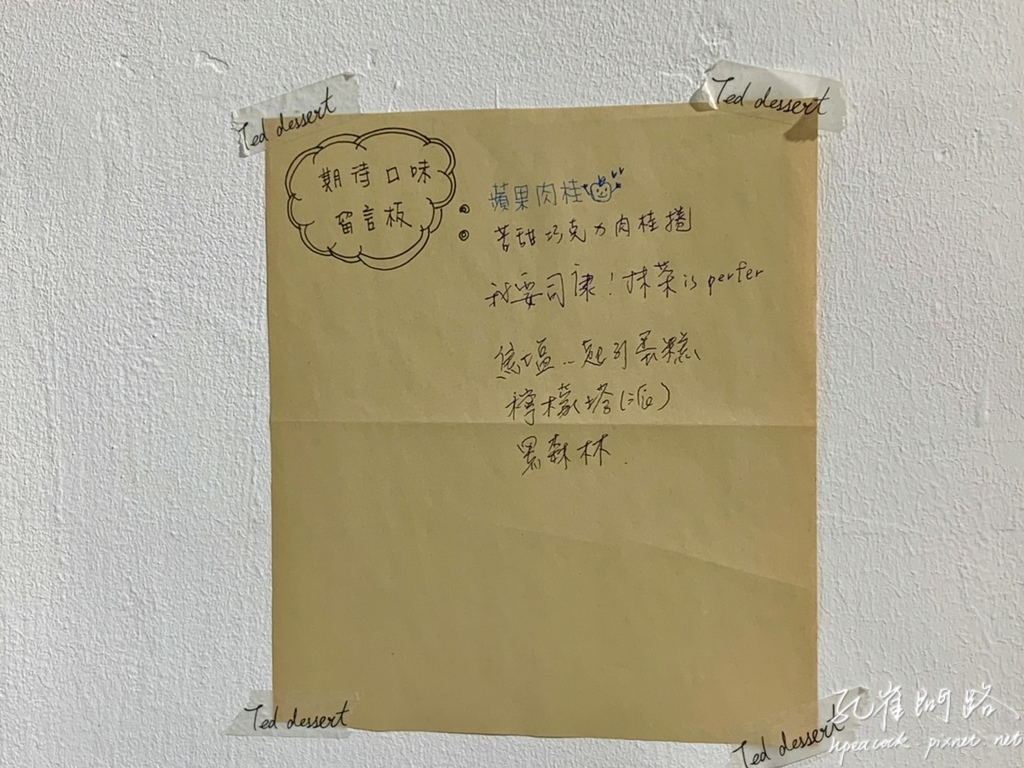 Ted dessert
Ted dessert
期待口味
留言板
蘋果肉桂
苦甜巧克力肉桂捲
我要司康！抹茶 is perfer
焦塩..起司蛋糕
檸檬塔(派)
黑森林
Ted dessert
Ted dessert
孔雀問路
hpeacock.pixnet.net